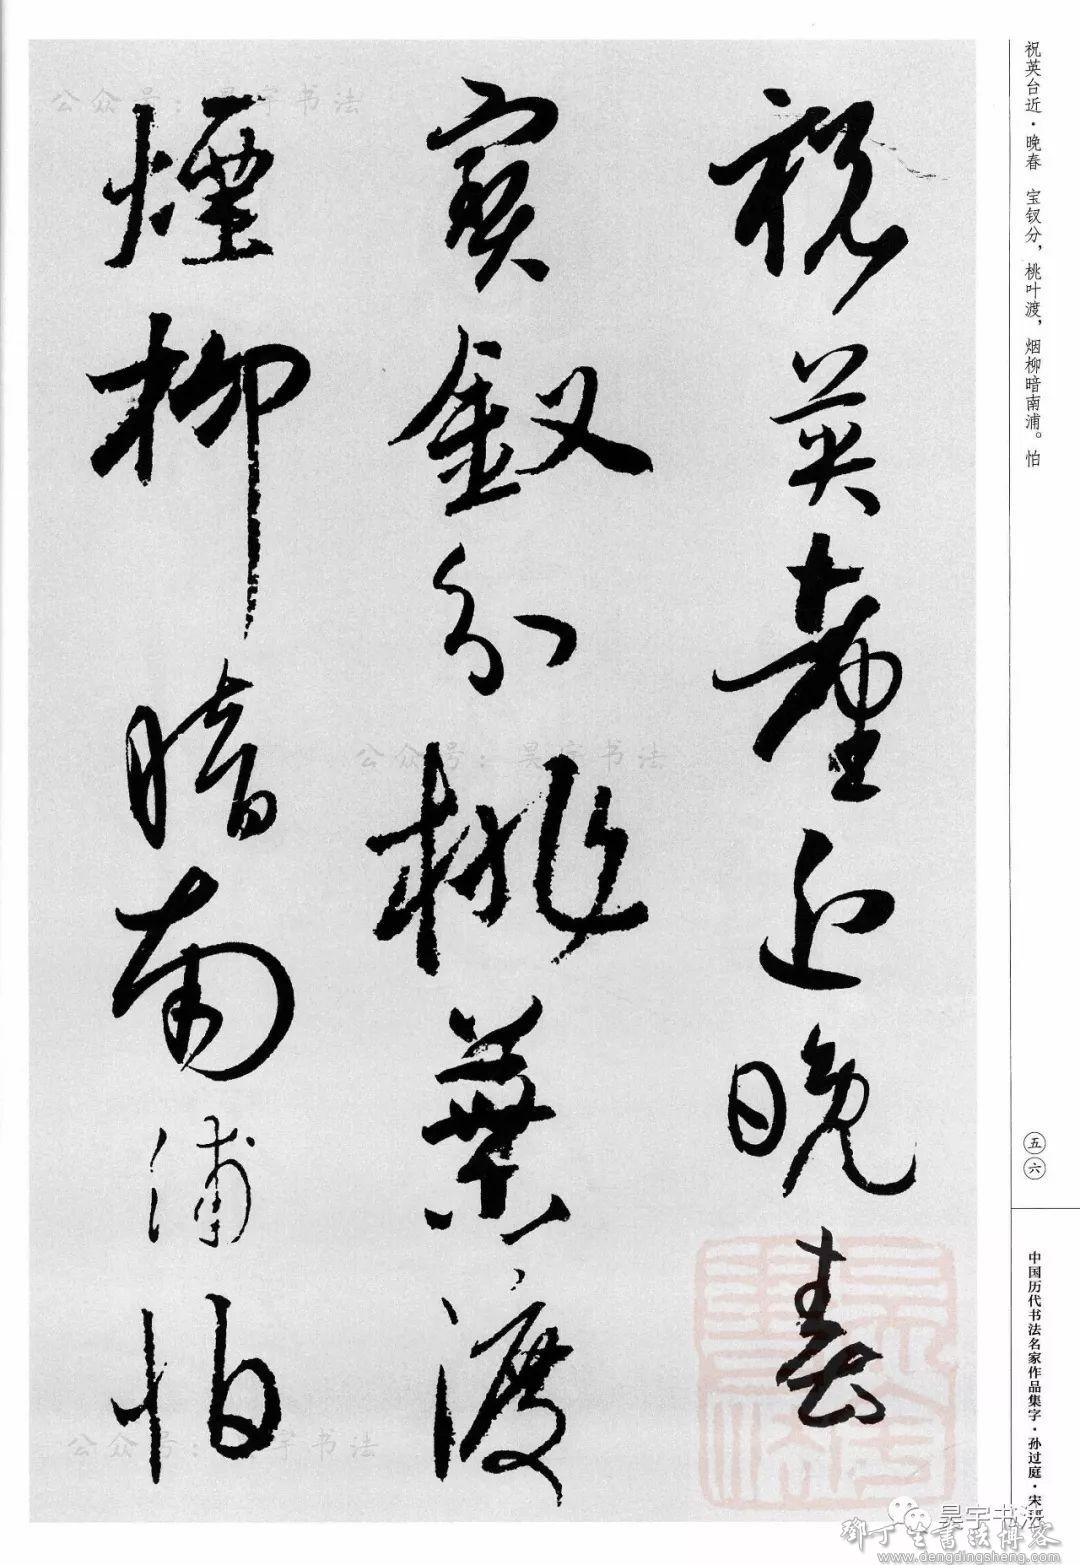 祝英台近·晚春 宝钗分，桃叶渡，烟柳暗南浦。怕
祝英臺近晚春
寶釵分桃葉渡
煙柳暗南浦怕
五六
中国历代书法名家作品集字·孙过庭·宋词
公众号：昊宇书法
公众号：昊宇书法
公众号：昊宇书法
昊宇书法
鄧丁生書法博客
www.dengdingsheng.com